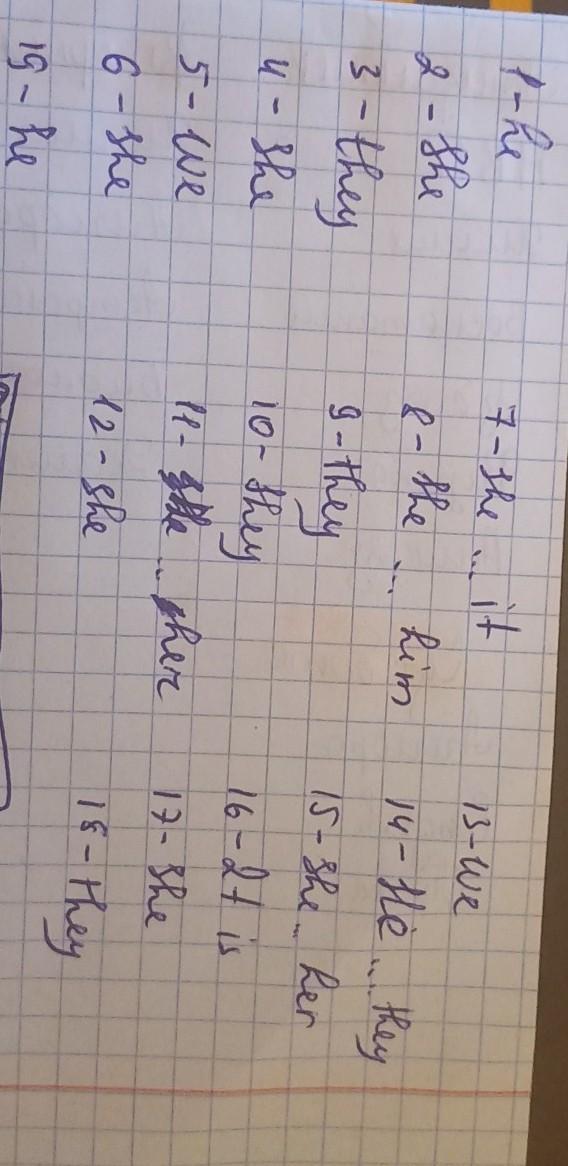 1 - he
2 - she
3 - they
4 - she
5 - we
6 - she
19 - he
7 - she ... it
8 - she ... him
9 - they
10 - they
11 - she ... her
12 - she
13 - we
14 - He ... they
15 - she ... her
16 - It is
17 - she
18 - they